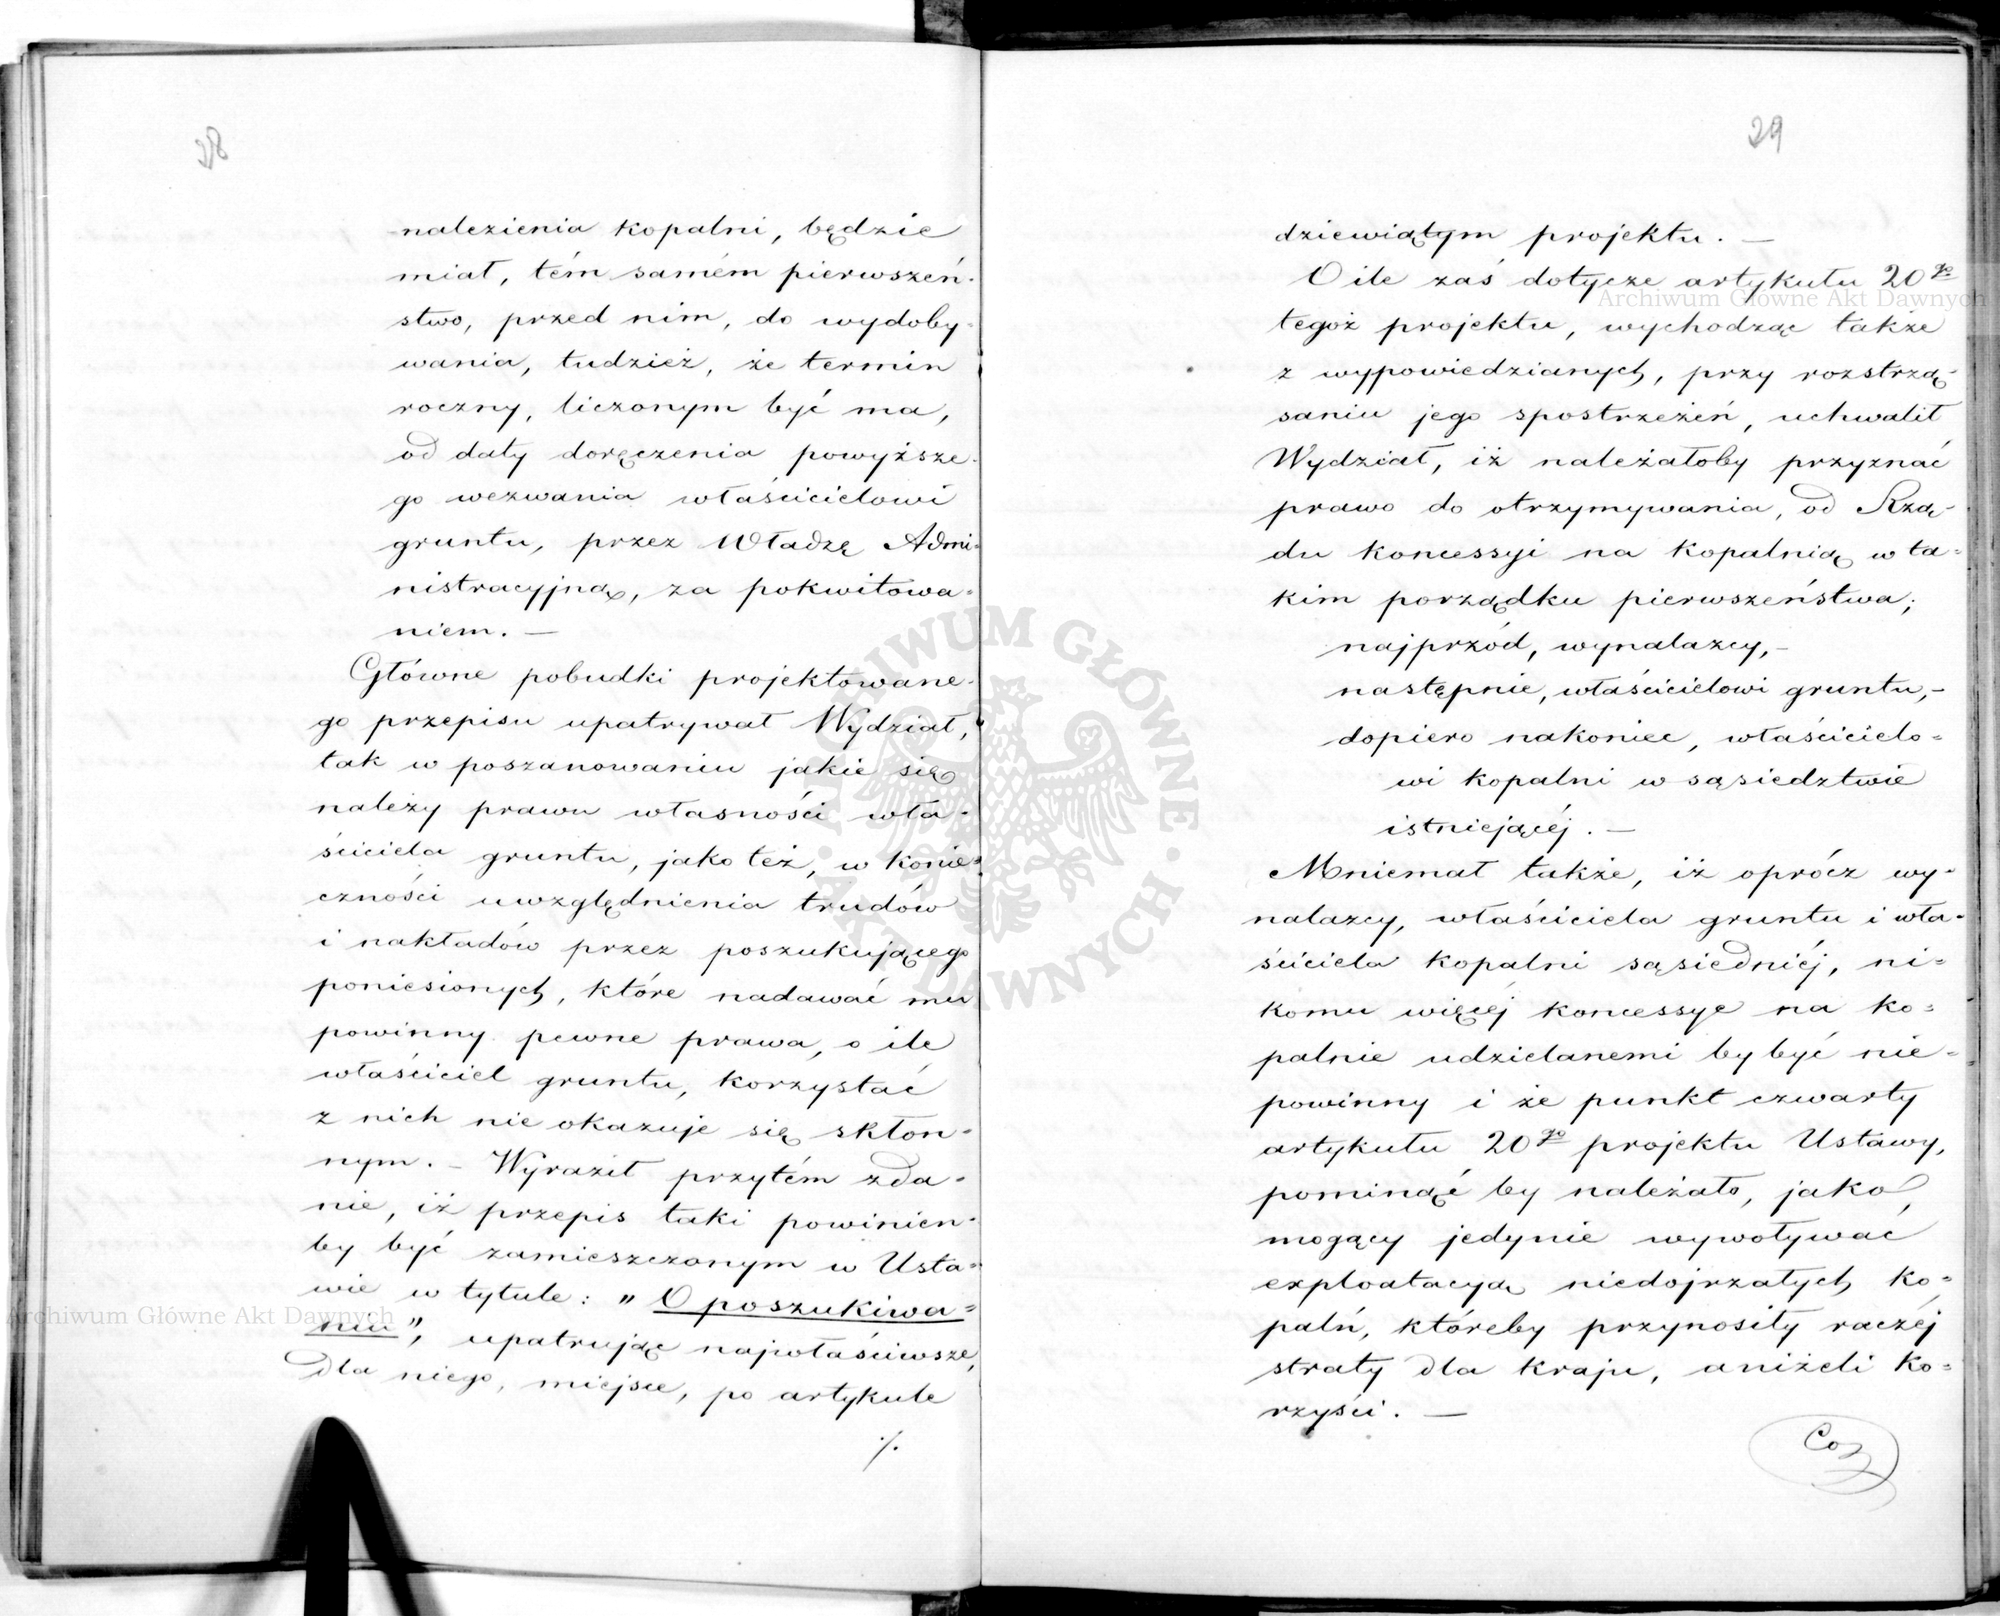 28
nalezienia kopalni, będzie
miał, tém samém pierwszeń-
stwo, przed nim, do wydoby-
wania, tudzież, że termin
roczny, liczonym być ma,
od daty doręczenia powyższe-
go wezwania właścicielowi
gruntu, przez Władzę Admi-
nistracyjną, za pokwitowa-
niem. —
Główne pobudki projektowane-
go przepisu upatrywał Wydział,
tak w poszanowaniu jakie się
należy prawu własności wła-
ściciela gruntu, jako też, w konie-
czności uwzględnienia trudów
i nakładów przez poszukującego
poniesionych, które nadawać mu
powinny pewne prawa, o ile
właściciel gruntu, korzystać
z nich nie okazuje się skłon-
nym. — Wyraził przytém zda-
nie, iż przepis taki powinien-
by być zamieszczonym w Usta-
wie w tytule: „O poszukiwa-
niu”, upatrując najwłaściwsze,
dla niego, miejsce, po artykule
./.
29
dziewiątym projektu. —
O ile zaś dotycze artykułu 20go
tegoż projektu, wychodząc także
z wypowiedzianych, przy rozstrzą-
saniu jego spostrzeżeń, uchwalił
Wydział, iż należałoby przyznać
prawo do otrzymywania, od Rzą-
du koncessyi na kopalnią w ta-
kim porządku pierwszeństwa;
najprzód, wynalazcy, —
następnie, właścicielowi gruntu, —
dopiero nakoniec, właścicielo-
wi kopalni w sąsiedztwie
istniejącéj. —
Mniemał także, iż oprócz wy-
nalazcy, właściciela gruntu i wła-
ściciela kopalni sąsiedniéj, ni-
komu więcéj koncessye na ko-
palnie udzielanemi by być nie-
powinny i że punkt czwarty
artykułu 20go projektu Ustawy,
pominąć by należało, jako,
mogący jedynie wywoływać
exploatacyą niedojrzałych ko-
palń, któreby przynosiły raczéj
straty dla kraju, aniżeli ko-
rzyści. —
Co
Archiwum Główne Akt Dawnych
Archiwum Główne Akt Dawnych
ARCHIWUM GŁÓWNE AKT DAWNYCH